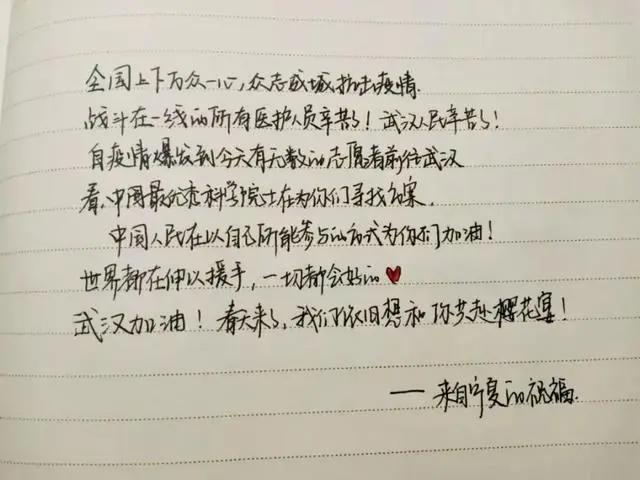 全国上下万众一心,众志成城抗击疫情.
战斗在一线的所有医护人员辛苦了!武汉人民辛苦了!
自疫情爆发到今天有无数的志愿者前往武汉
看,中国最优秀科学院士在为你们寻找答案.
中国人民在以自己所能参与的方式为你们加油!
世界都在伸以援手,一切都会好的❤
武汉加油!春天来了,我们依旧想和你共赴樱花宴!
——来自宁夏的祝福.